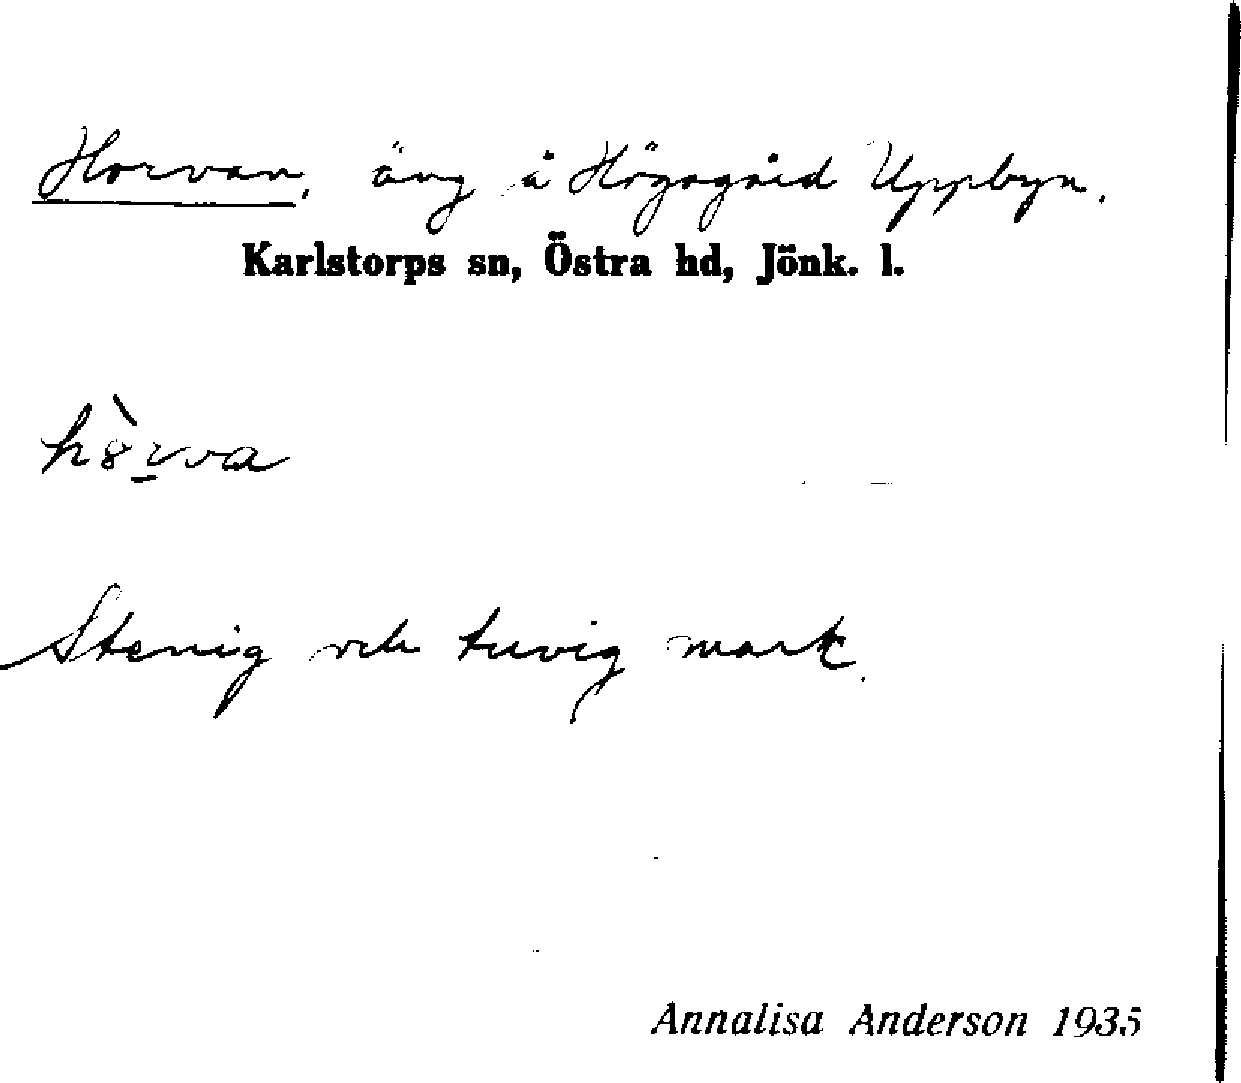 Horvan, äng å Högagärd Uppbyn.
Karlstorps sn, Östra hd, Jönk. l.
hòrva
Stenig och tuvig mark.
Annalisa Anderson 1935